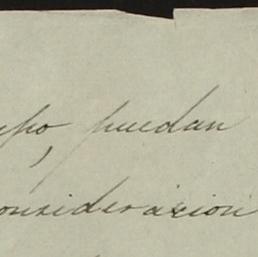 puedan
onsideracion